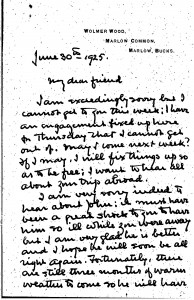 WOLMER WOOD,
MARLOW COMMON,
MARLOW, BUCKS.
June 30th 1925.
My dear friend
I am exceedingly sorry but I
cannot get to you this week; I have
an engagement fixed up here
on Thursday that I cannot get
out of. May I come next week?
If I may, I will fix things up so
as to be free; I want to hear all
about your trip abroad.
I am very sorry indeed to
hear about John; it must have
been a great shock to you to have
him so ill while you were away
but I am very glad he is better
and I hope he will soon be all
right again. Fortunately, there
are still three months of warm
weather to come so he will have